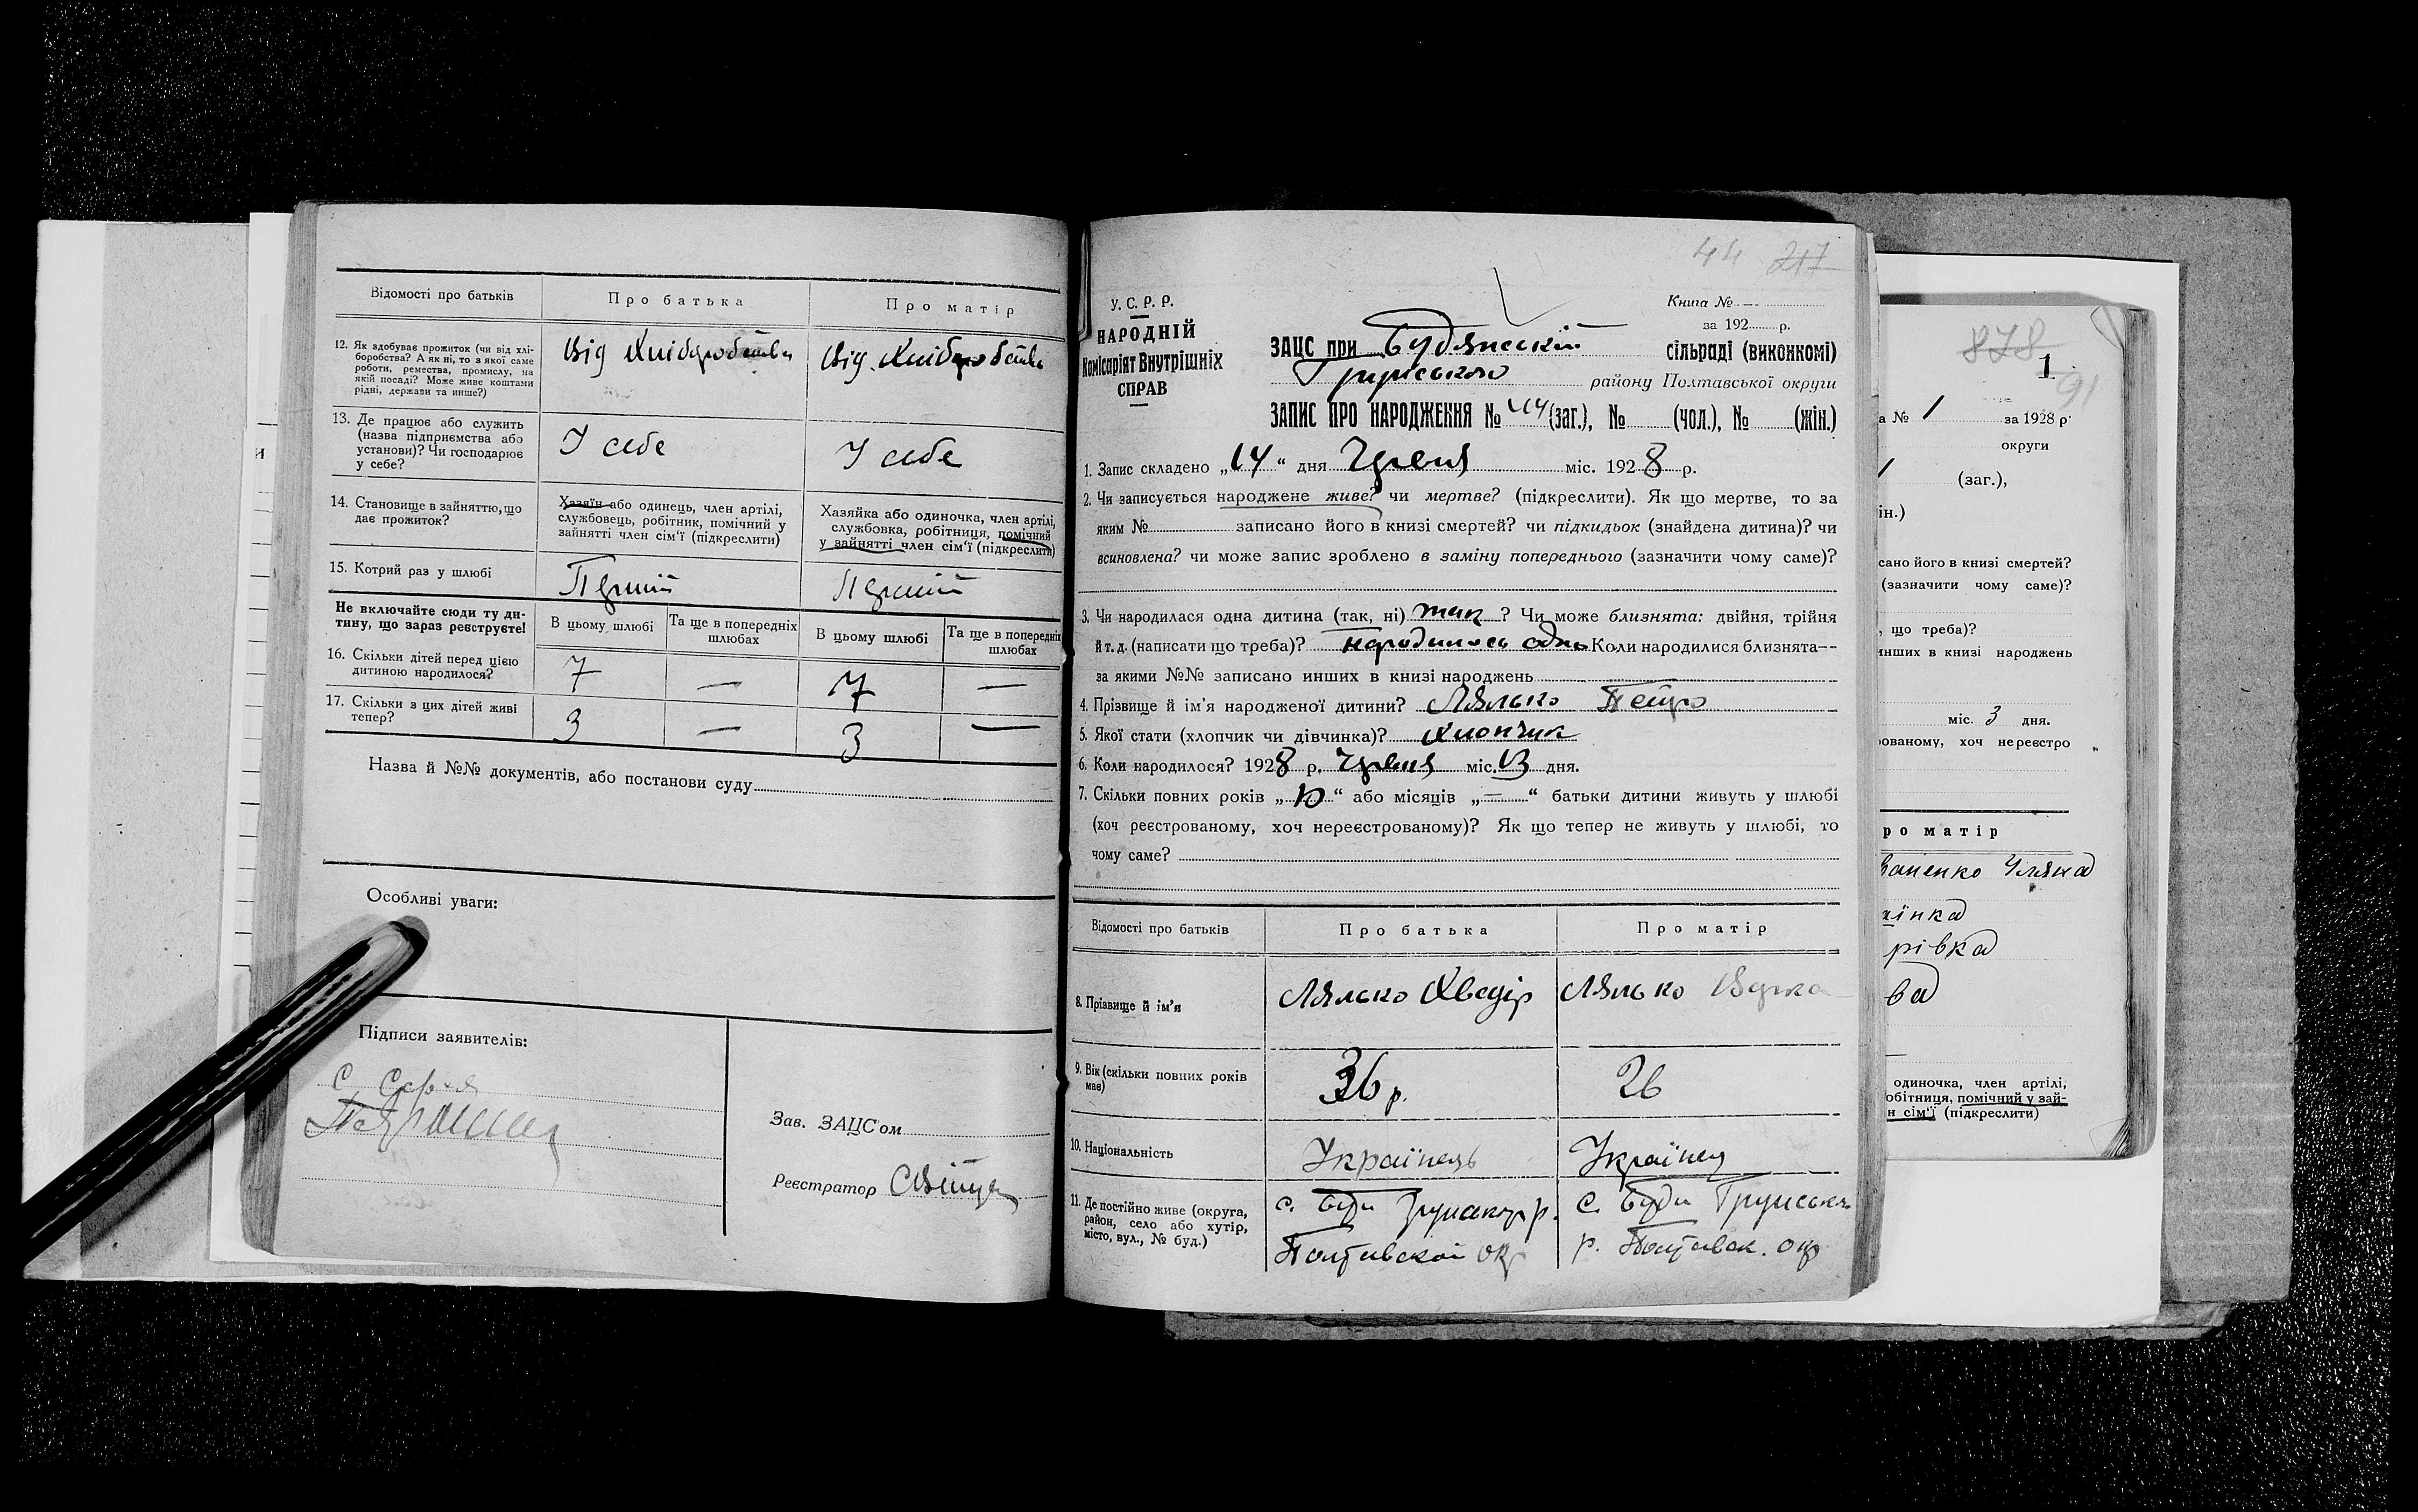 Відомості про батьків
Про батька
Про матір
12. Як здобуває прожиток (чи від хлі-
боробства? А як ні, то з якої саме
роботи, ремества, промислу, на
якій посаді? Може живе коштами
рідні, держави та инше?)
Від Хліборобства
Від Хліборобства
13. Де працює або служить
(назва підприємства або
установи)? Чи господарює
у себе?
У себе
У себе
14. Становище в зайняттю, що
дає прожиток?
Хазяїн або одинець, член артілі,
службовець, робітник, помічний у
зайнятті член сім'ї (підкреслити)
Хазяйка або одиночка, член артілі,
службовка, робітниця, помічний
у зайнятті член сім'ї (підкреслити)
15. Котрий раз у шлюбі
Перший
Перший
Не включайте сюди ту ди-
тину, що зараз реєструєте!
В цьому шлюбі
Та ще в попередніх
шлюбах
В цьому шлюбі
Та ще в попередніх
шлюбах
16. Скільки дітей перед цією
дитиною народилося?
7 — 7 —
17. Скільки з цих дітей живі
тепер?
3 — 3 —
Назва й №№ документів, або постанови суду
Особливі уваги:
Підписи заявителів:
Зав. ЗАЦС'ом
Реєстратор
44 217
У. С. Р. Р.
НАРОДНІЙ
Комісаріят Внутрішніх
СПРАВ
Книга № —
за 192 р.
ЗАЦС при Будянській сільраді (виконкомі)
Грунського району Полтавської округи
ЗАПИС ПРО НАРОДЖЕННЯ № 44 (заг.), № (чол.), № (жін.)
1. Запис складено „14“ дня Червня міс. 1928 р.
2. Чи записується народжене живе? чи мертве? (підкреслити). Як що мертве, то за
яким № записано його в книзі смертей? чи підкидьок (знайдена дитина)? чи
всиновлена? чи може запис зроблено в заміну попереднього (зазначити чому саме)?
3. Чи народилася одна дитина (так, ні) так? Чи може близнята: двійня, трійня
й т. д. (написати що треба)? народилось одна Коли народилися близнята—
за якими №№ записано инших в книзі народжень
4. Прізвище й ім'я народженої дитини? Лялько Петро
5. Якої стати (хлопчик чи дівчинка)? Хлопчик
6. Коли народилося? 1928 р. Червня міс. 13 дня.
7. Скільки повних років „10“ або місяців „—“ батьки дитини живуть у шлюбі
(хоч реєстрованому, хоч нереєстрованому)? Як що тепер не живуть у шлюбі, то
чому саме?
Відомості про батьків
Про батька
Про матір
8. Прізвище й ім'я
Лялько Хведір
Лялько
9. Вік (скільки повних років
має)
36 р.
26
10. Національність
Українець
Українец
11. Де постійно живе (округа,
район, село або хутір,
місто, вул., № буд.)
с. Буди
Полтавской окр
с. Буди Грунськ
р. Полтавск. окр
878
1
91
а № 1 за 1928 р.
округи
(заг.),
ін.)
сано його в книзі смертей?
(зазначити чому саме)?
, що треба)?
инших в книзі народжень
міс. 3 дня.
ованому, хоч нереєстро
ро матір
Уляна
аїнка
рівка
ва
—
одиночка, член артілі,
обітниця, помічний у зай-
н сім'ї (підкреслити)